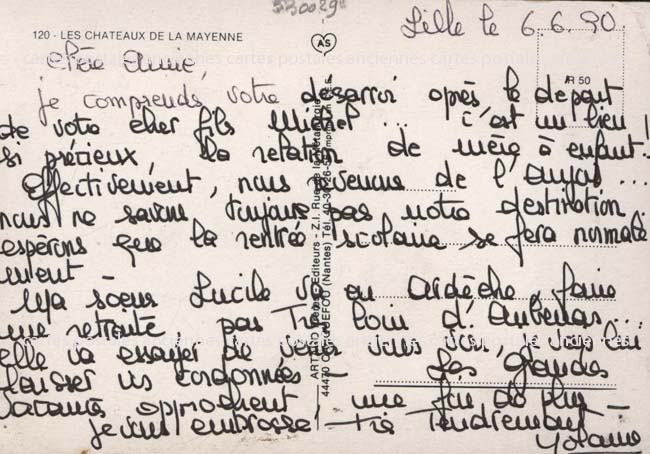 530029
Lille le 6.6.90
120 - LES CHATEAUX DE LA MAYENNE
AS
Chère Annie,
R 50
je comprends votre désarroi après le départ
de votre cher fils Michel ... c'est un lien
si précieux, la relation de mère à enfant...
Effectivement, nous revenons de l'Anjou ...
nous ne savons toujours pas notre destination ...
espérons que la rentrée scolaire se fera normale
ment -
Ma soeur Lucile va en Ardèche, faire
une retraite, pas très loin d'Aubenas ...
elle va essayer de venir vous voir, je vais lui
laisser vos coordonnées - Les grandes
vacances approchent - une fin de plus -
je vous embrasse - très tendrement -
Yolaine
Editeurs - Z.I. Rue de la Métallurgie
44470 CARQUEFOU (Nantes) Tél. 40-30
cartes postales anciennes